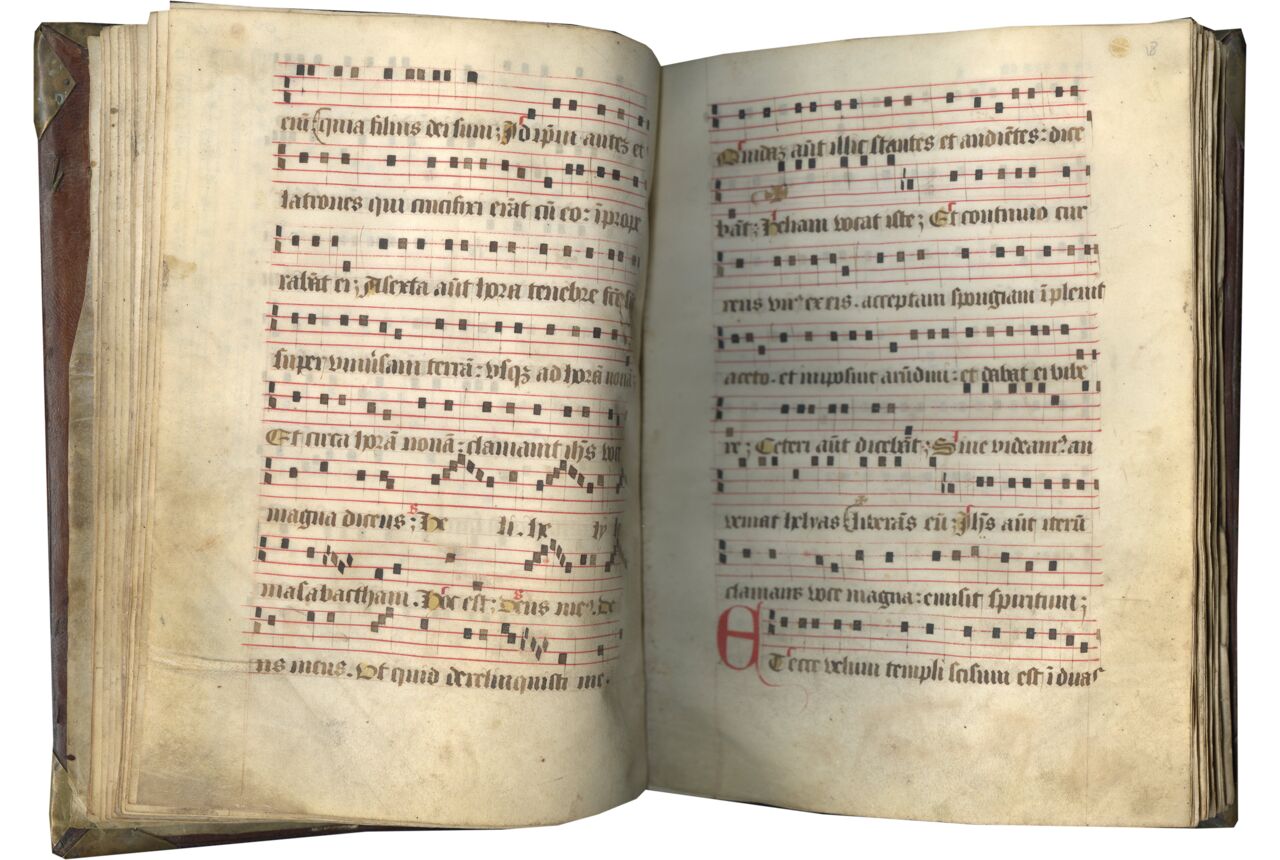 eiū (quia filius dei sum; Jd ip̄m autē et
latrones qui crucifixi erāt cū eo: īprope
rabāt ei; A sexta aūt hora tenebre fcē sūt
super vniūsam terrā: vsqꝫ ad horā nonā;
Et circa horā nonā: clamauit ih̄s voce
magna dicens; He li. he ly la
masabacthani. Hoc est; Deus me9. de
us meus. Vt quid dereliquisti me.
8
Quidaꝫ aūt illic stantes et audiētes: dice
bāt; Heliam vocat iste; Et continuo cur
rens vn9 ex eis. acceptam spongiam īpleuit
aceto. et imposuit arūdini: et dabat ei bibe
re; Ceteri aūt dicebāt; Sine videam9: an
veniat helyas (liberās eū; Jh̄s aūt iterū
clamans voce magna: emisit spiritum;
ET ecce velum templi scisum est ī duas